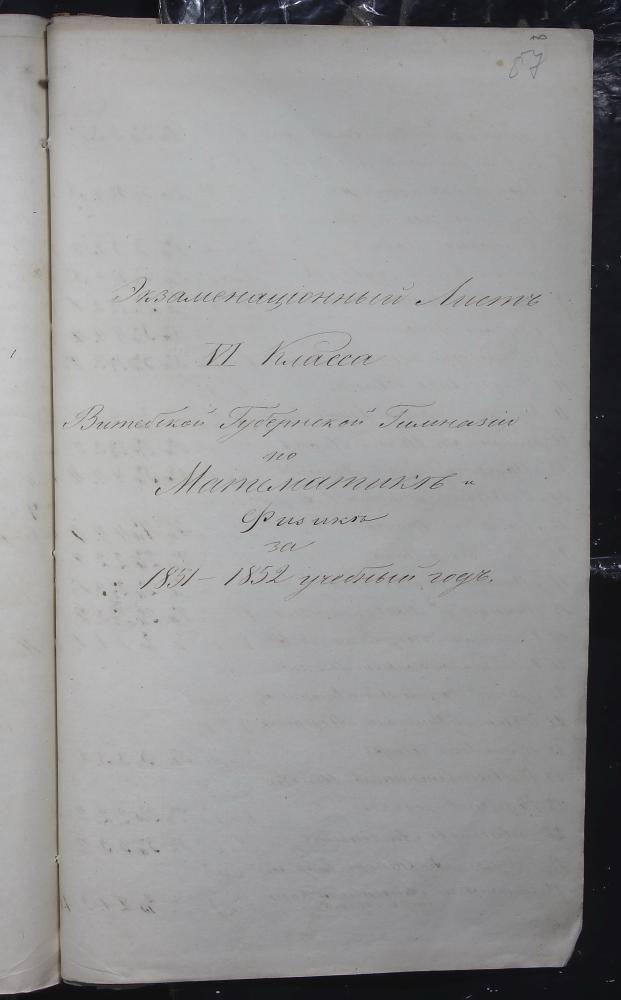 87
Экзаменаціонный Листъ
VI Класса
Витебской Губернской Гимназіи
по
Математикѣ и
Физикѣ
за
1851 – 1852 учебный годъ.